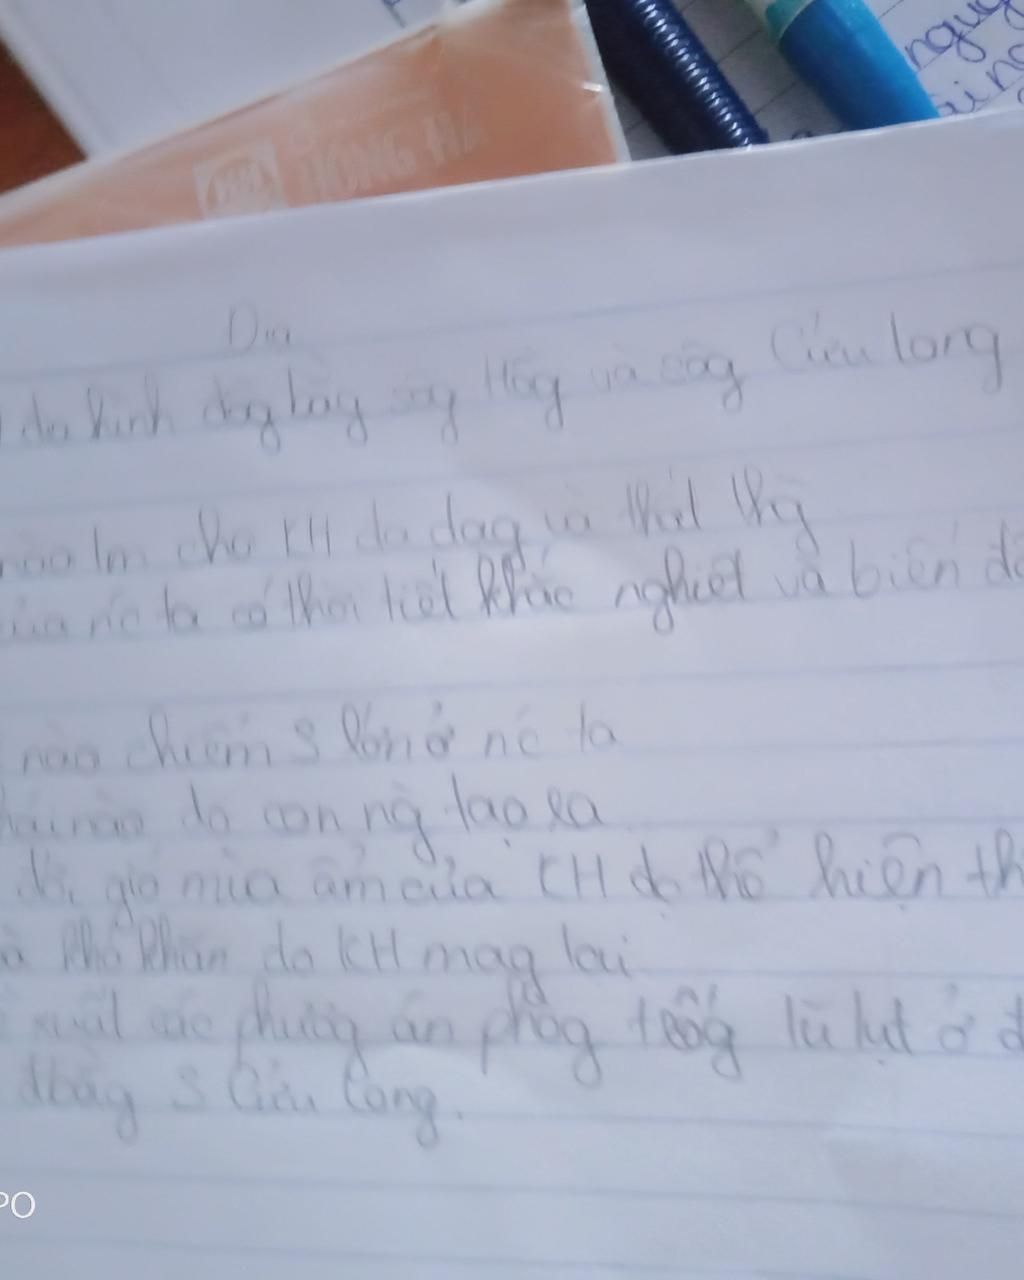 HONG HÀ
Địa
địa hình đồg bằg sôg Hồg và sôg Cửu long
nào lm cho KH đa dạg và thất thg
của nc ta có thời tiết khắc nghiệt và biến
nào chiếm S lớn ở nc ta
nào do con ng tạo ra
gió mùa ẩm của KH đc thể hiện th
khó khăn do KH mag lại
xuất các phươg án phòg chốg lũ lụt ở đ
đbằg S Cửu Long.